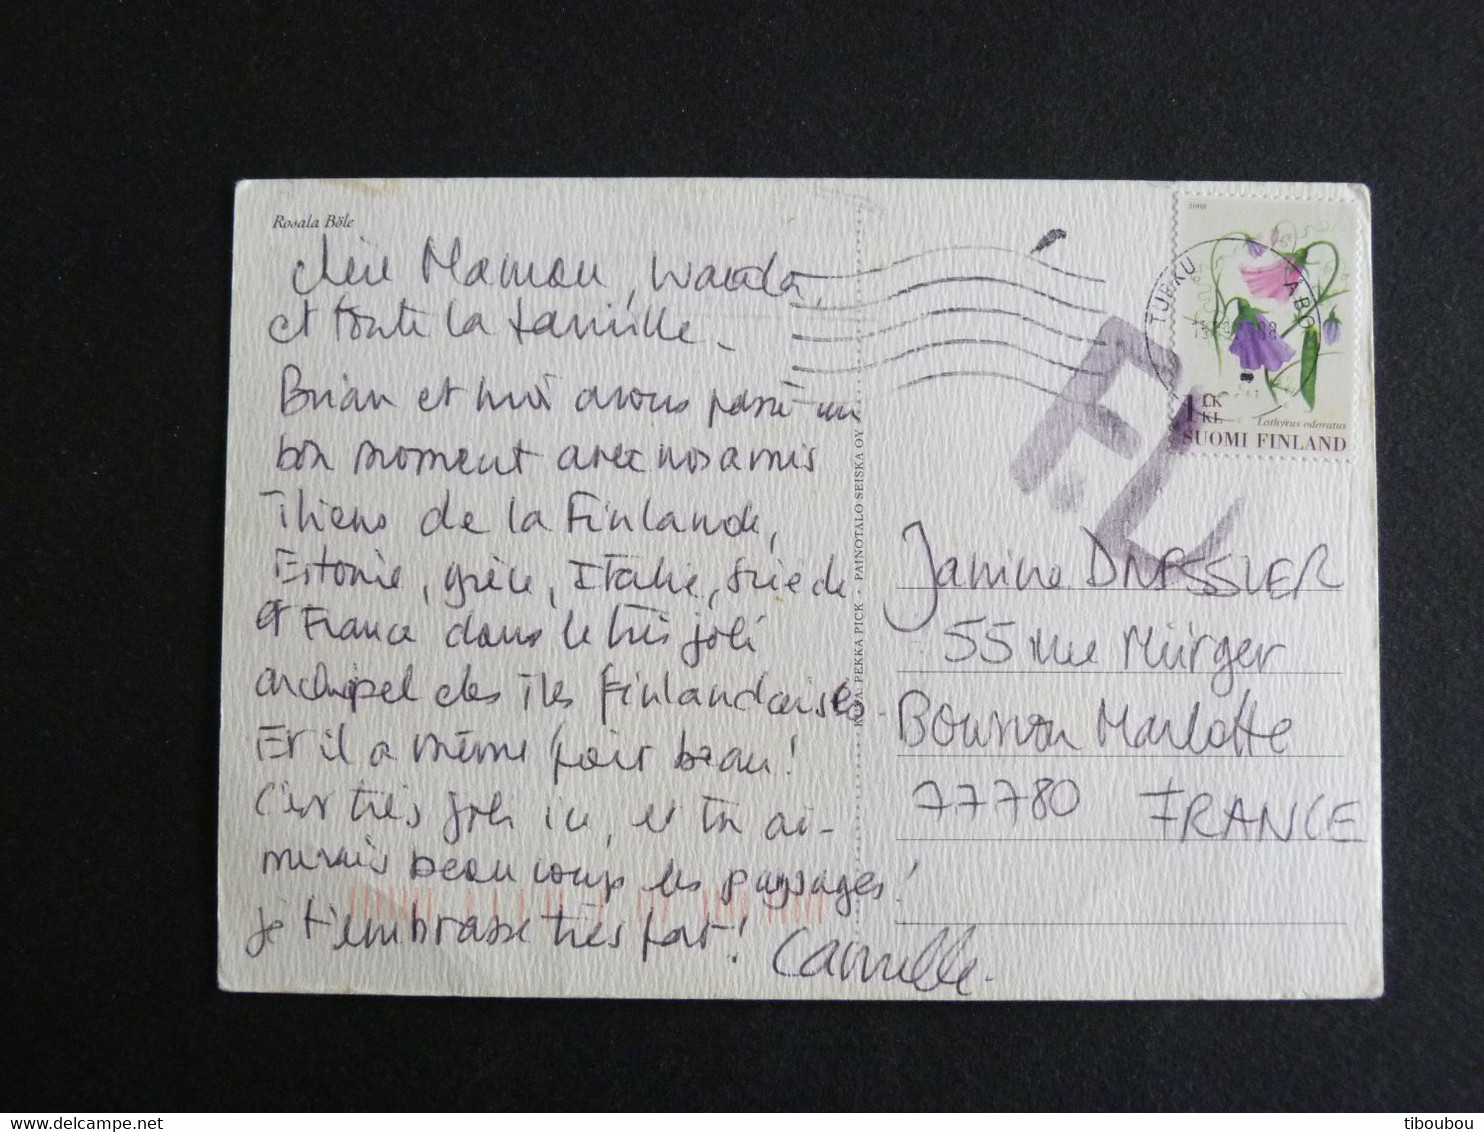 Rosala Böle
Chère Maman, Wanda,
et toute la famille_
Brian et moi avons passé un
bon moment avec nos amis
îliens de la Finlande,
Estonie, grèce, Italie, Suède
et France dans le très joli
archipel des îles finlandaises.
Et il a même fait beau!
C'est très joli ici, et tu ai-
merais beaucoup les paysages!
je t'embrasse très fort!
Camille.
KUVA PEKKA PICK · PAINOTALO SEISKA OY
2008
TURKU
ÅBO
1 LK
KL
Lathyrus odoratus
SUOMI FINLAND
Janine
55 rue Mürger
Bourron Marlotte
77780 FRANCE
tiboubou